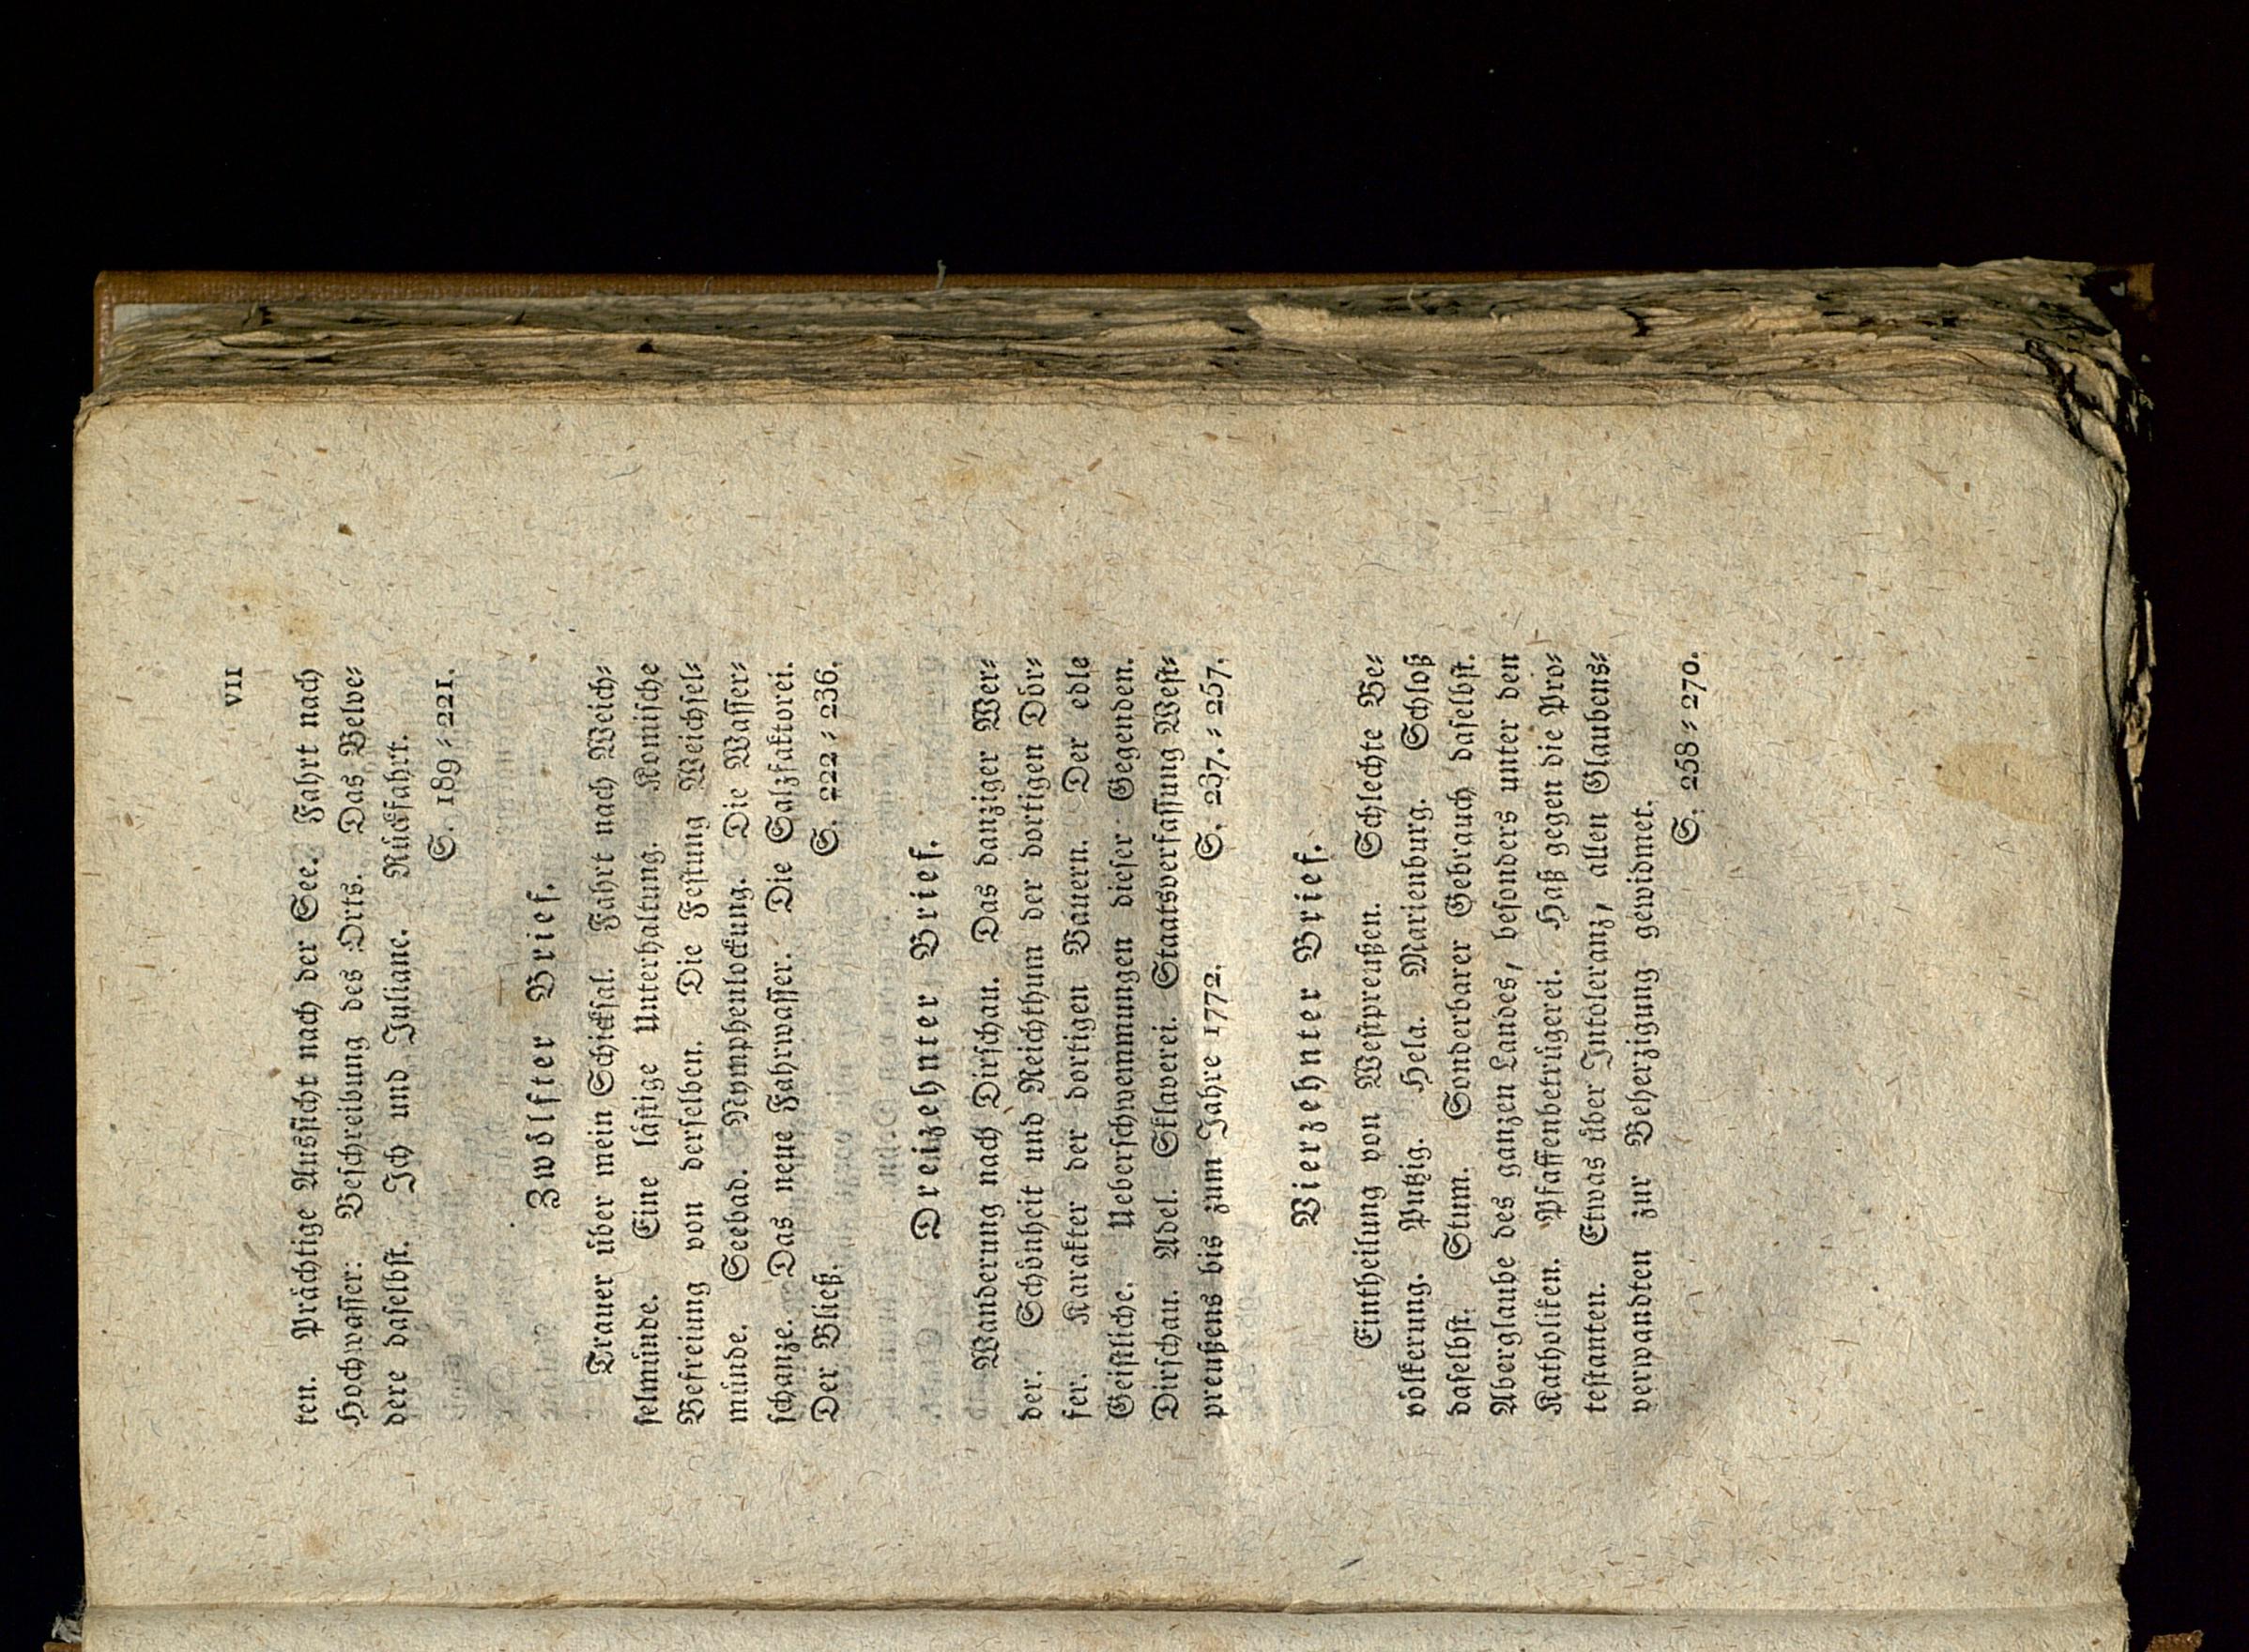 VII
ten. Prächtige Aussicht nach der See. Fahrt nach
Hochwasser. Beschreibung des Orts. Das Belve⸗
dere daselbst. Ich und Juliane. Rückfahrt.
S. 189⸗221.
Zwölfter Brief.
Trauer über mein Schicksal. Fahrt nach Weich⸗
selmünde. Eine lästige Unterhaltung. Komische
Befreiung von derselben. Die Festung Weichsel⸗
münde. Seebad. Nymphenlockung. Die Wasser⸗
schanze. Das neue Fahrwasser. Die Salzfaktorei.
Der Bließ. S. 222⸗236.
Dreizehnter Brief.
Wanderung nach Dirschau. Das danziger Wer⸗
der. Schönheit und Reichthum der dortigen Dör⸗
fer. Karakter der dortigen Bauern. Der edle
Geistliche. Ueberschwemmungen dieser Gegenden.
Dirschau. Adel. Sklaverei. Staatsverfassung West⸗
preußens bis zum Jahre 1772. S. 237.⸗257.
Vierzehnter Brief.
Eintheilung von Westpreußen. Schlechte Be⸗
völkerung. Putzig. Hela. Marienburg. Schloß
daselbst. Stum. Sonderbarer Gebrauch daselbst.
Aberglaube des ganzen Landes, besonders unter den
Katholiken. Pfaffenbetrügerei. Haß gegen die Pro⸗
testanten. Etwas über Intoleranz, allen Glaubens⸗
verwandten zur Beherzigung gewidmet.
S. 258⸗270.